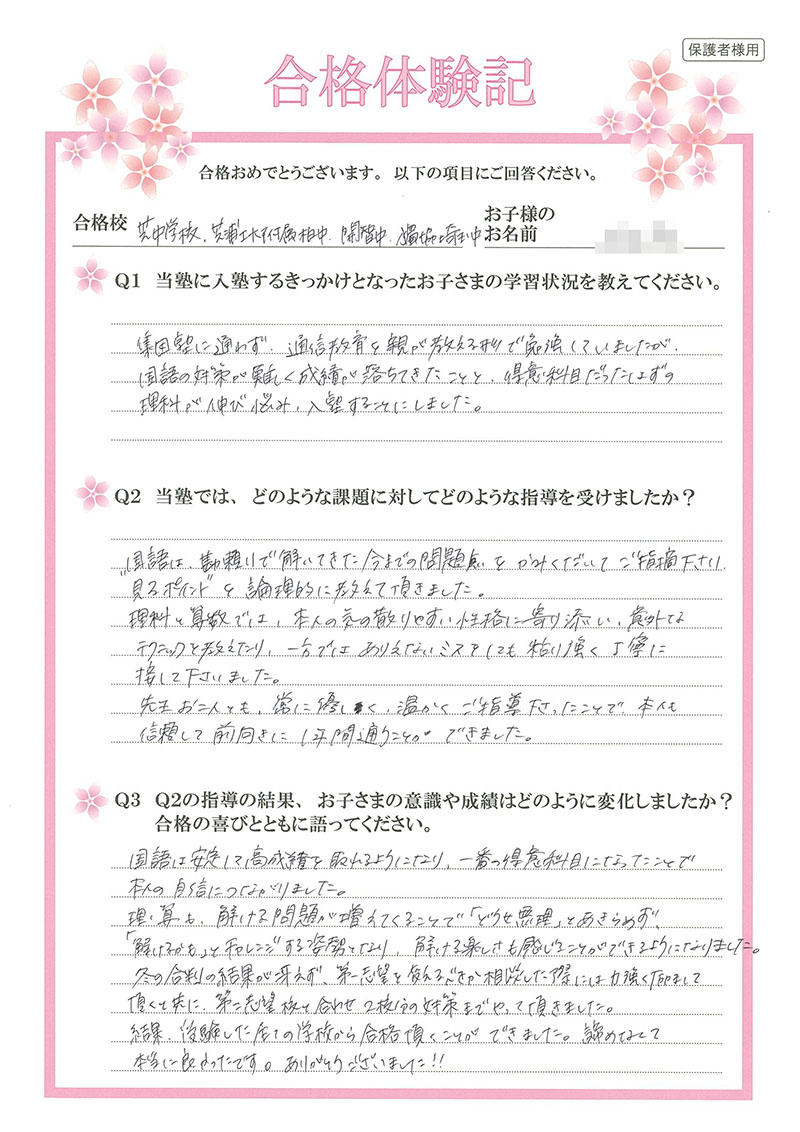 保護者様用
合格体験記
合格おめでとうございます。以下の項目にご回答ください。
合格校 芝中学校、芝浦工大附属柏中、開智中、 埼玉中
お子様の
お名前
Q1 当塾に入塾するきっかけとなったお子さまの学習状況を教えてください。
集団塾に通わず、通信教育を親が教える形で勉強していましたが、
国語の対策が難しく成績が落ちてきたことと、得意科目だったはずの
理科が伸び悩み、入塾することにしました。
Q2 当塾では、どのような課題に対してどのような指導を受けましたか？
国語は、勘頼りで解いてきた今までの問題点をかみくだいてご指摘下さり、
"見るポイント"を論理的に教えて頂きました。
理科と算数では、本人の気の散りやすい性格に寄り添い、意外な
テクニックを教えたり、一方ではありえないミスをしても粘り強く丁寧に
接して下さいました。
先生お二人とも、常に優しく、温かくご指導下さったことで、本人も
信頼して前向きに1年間通うことができました。
Q3 Q2の指導の結果、お子さまの意識や成績はどのように変化しましたか？
合格の喜びとともに語ってください。
国語は安定して高成績を取れるようになり、一番の得意科目になったことで
本人の自信につながりました。
理・算も、解ける問題が増えてくることで「どうせ無理」とあきらめず、
「解けるかも」とチャレンジする姿勢となり、解ける楽しさも感じることができるようになりました。
冬の合判の結果が冴えず、第一志望を変えるべきか相談した際には力強く励まして
頂くと共に、第二志望校と合わせ2校分の対策までやって頂きました。
結果、受験した全ての学校から合格頂くことができました。諦めなくて
本当に良かったです。ありがとうございました!!